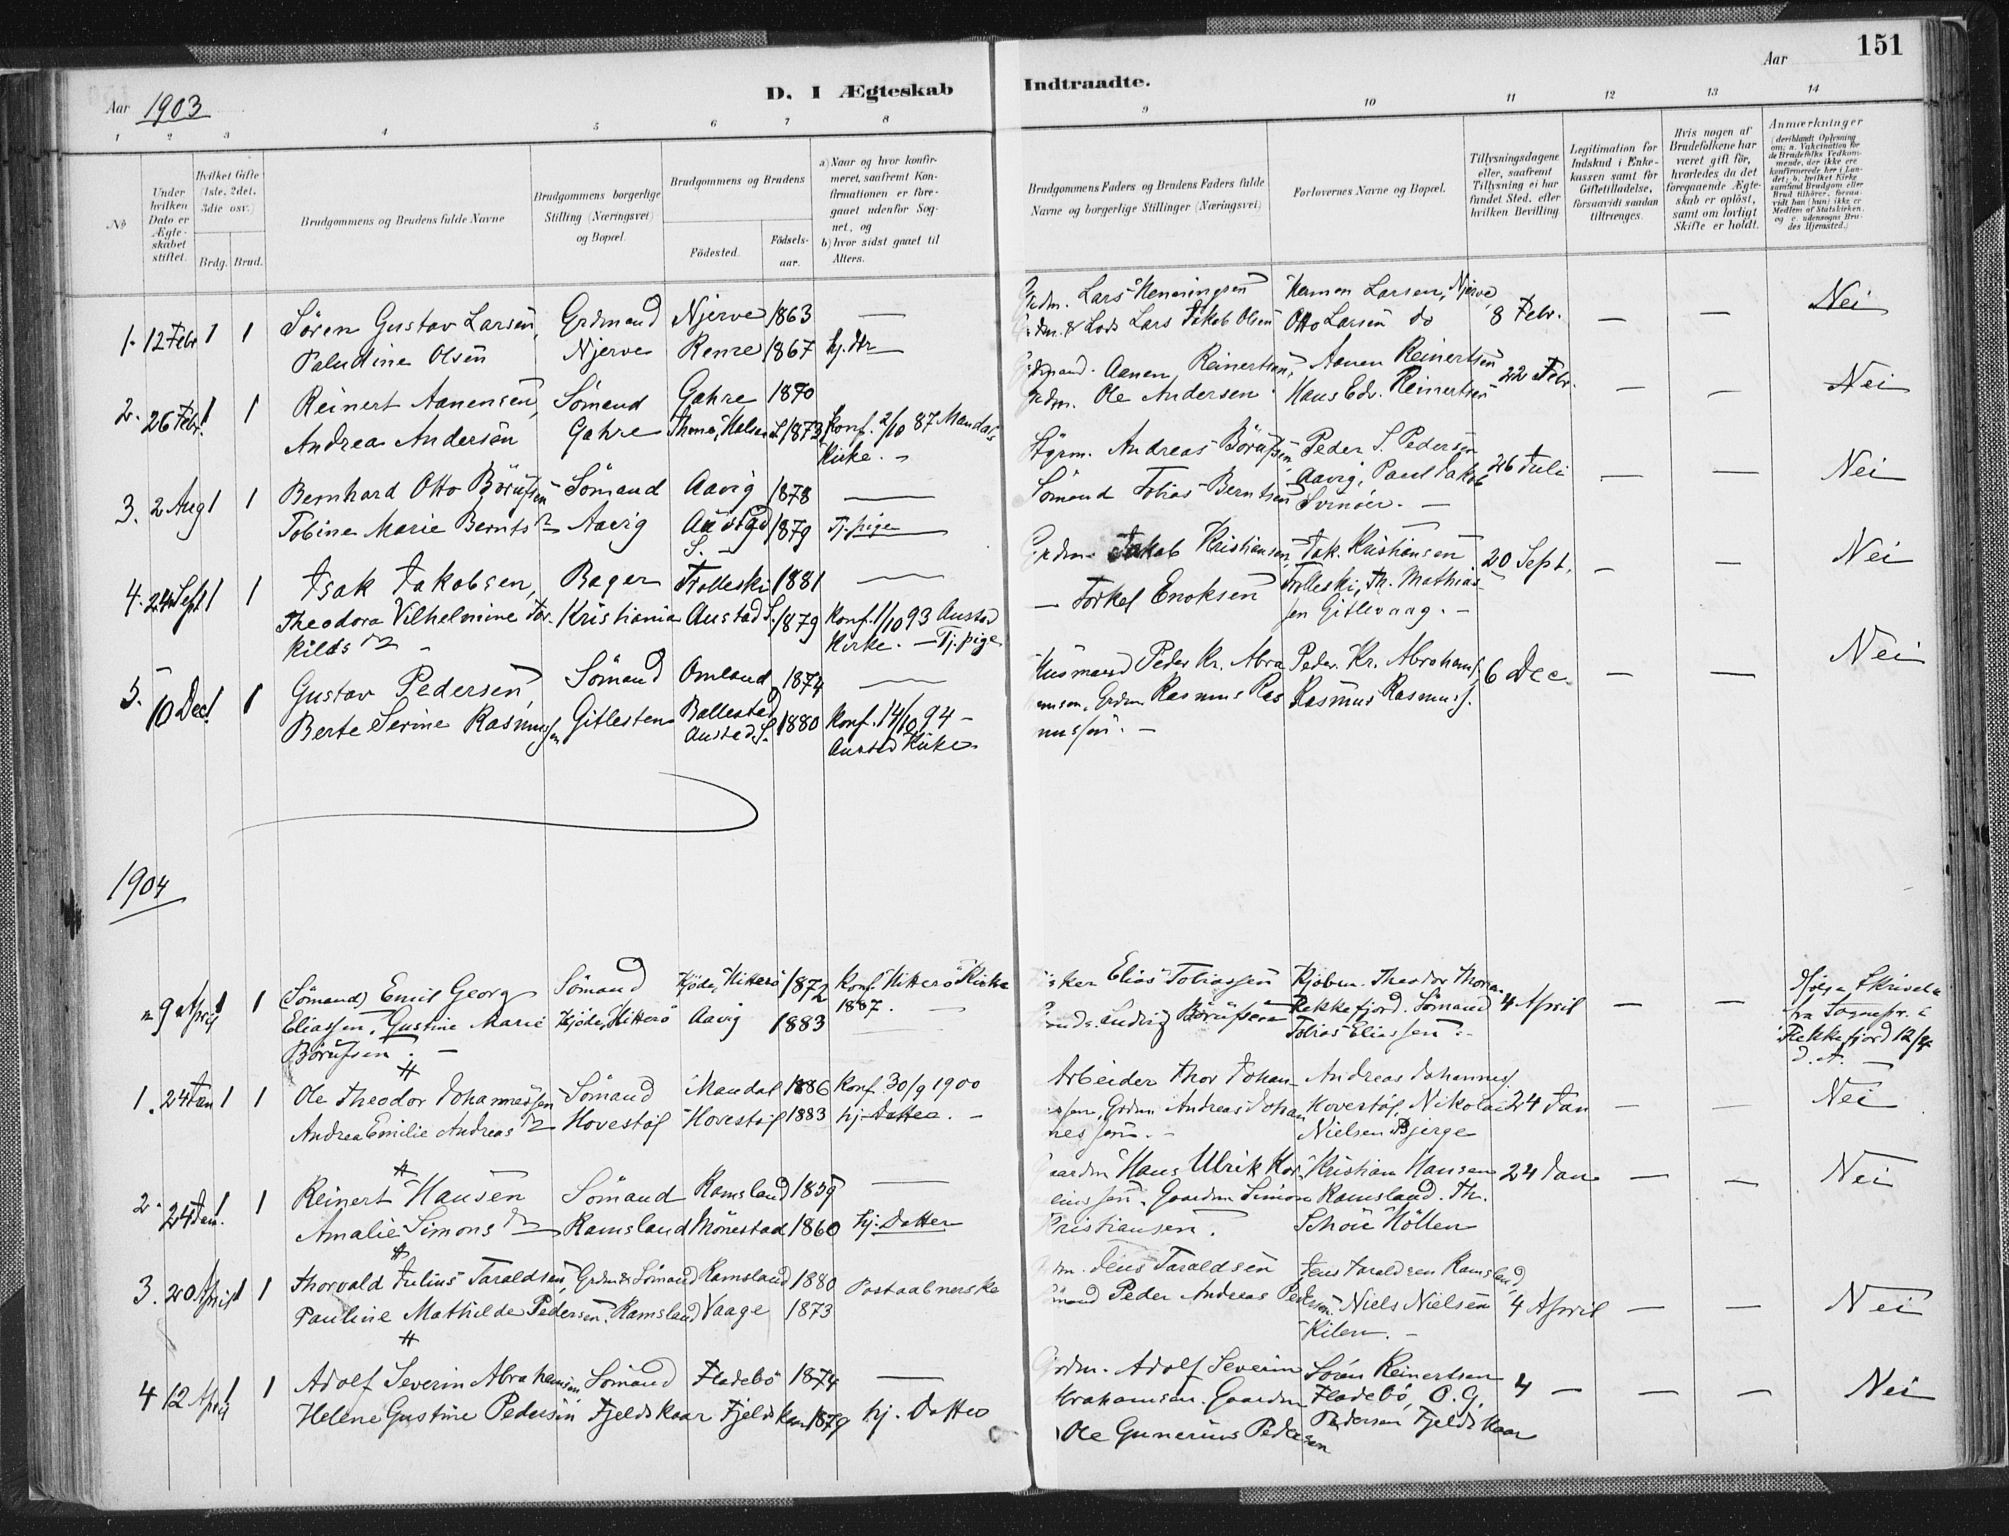 151
Aar 1903
D. I Ægteskab Indtraadte.
Aar
1 2 3 4 5 6 7 8 9 10 11 12 13 14
No
Under hvilken Dato er Ægteskabet stiftet.
Hvilket Gifte (1ste, 2det, 3die osv.)
Brdg. Brud.
Brudgommens og Brudens fulde Navne
Brudgommens borgerlige Stilling (Næringsvei) og Bopæl.
Brudgommens og Brudens
Födested. Födselsaar.
a) Naar og hvor konfirmeret, saafremt Konfirmationen er foregaaet udenfor Sognet, og
b) hvor sidst gaaet til Alters.
Brudgommens Faders og Brudens Faders fulde Navne og borgerlige Stillinger (Næringsvei)
Forlovernes Navne og Bopæl.
Tillysningsdagene eller, saafremt Tillysning ei har fundet Sted, efter hvilken Bevilling
Legitimation for Indskud i Enkekassen samt for Giftetilladelse, forsaavidt saadan tiltrænges.
Hvis nogen af Brudefolkene har været gift før, hvorledes da det foregaaende Ægteskab er oplöst, samt om lovligt Skifte er holdt.
Anmærkninger (deriblandt Oplysning om: a. Vakcination for de Brudefolks Vedkommende, der ikke ere konfirmerede her i Landet; b. hvilket Kirkesamfund Brudgom eller Brud tilhörer, forsaavidt han (hun) ikke er Medlem af Statskirken, og c. udensogns Brudes Hjemsted.)
1. 12 Febr 1 1 Sören Gustav Larsen, Grdmand Njerve 1863 — Grdm. Lars Henningsen Hemon Larsen, Njerve 8 Febr. — — Nei
Paludine Olsen Njerve 1867 hj. Dtr Lods Lars Jakob Olsen Otto Larsen do
2. 26 Febr. 1 1 Reinert Aanensen, Sömand Gahre 1870 Aanen Reinertsen, Aanen Reinertsen 22 Febr. — — Nei
Andrea Andersen Gahre 1873 Konf. 2/10 87 Mandals Grdm. Ole Andersen. Hans Edv. Reinertsen
Kirke. —
3. 2 Aug 1 1 Bernhard Otto Börufsen Sömand Aavig 1878 — Styrm. Andreas Börufsen Peder S. Pedersen 26 Juli — — Nei
Tobine Marie Bernts D Aavig 1879 Tj. pige Sömand Tobias Berntsen Aavig, Paul Jakob
Svinöer. —
4. 24 Sept 1 1 Isak Jakobsen, Bager Trolleski 1881 — Grdm. Jakob Kristiansen, Jak. Kristiansen 20 Sept. — — Nei
Theodora Vilhelmine Tor- Kristiania Austad S. 1879 Konf. 1/10 93 Austad — Torkel Enoksen Trolleski, Th. Mathias-
kilds D — Kirke. — Tj. pige sen Gitlevaag. —
5. 10 Dec. 1 Gustav Pedersen Sömand Omland 1874 — Husmand Peder Kr. Abra Peder Kr. Abrahams. 6 Dec. — — Nei
Berte Serine Rasmussen Gitlesten Ballestad 1880 Konf. 14/10 94 — Grdm Rasmus Ras Rasmus Rasmuss.
Austad S. Austad Kirke mussen. —
1904
9 April 1 1 (Sömand) Emil Georg Sömand Hjöde, Hitterö 1872 Konf. Hitterö Kirke Elias Tobiassen Kjöbm. Theodor Thor 4 April — — Ifölge Skrivelse
Eliassen, Gustine Marie Hjöde, Hitterö Aavig 1883 1887. — Börufsen Flekkefjord. Sömand fra Sognepr. i
Börufsen. — Tobias Eliassen. Flekkefjord 12/4
d. A. —
1. 24 Jan 1 1 Ole Theodor Johannessen Sömand Mandal 1886 Konf. 30/9 1900 Arbeider Thor Johan- Andreas Johannes. 24 Jan — — Nei
Andrea Emilie Andreas D Hovestöl Hovestöl 1883 hj. Datter. — Grdm Andreas Johan Hovestöl, Nikolai
nessen. — Nielsen Bjerge
2. 24 Jan. 1 1 Reinert Hansen Sömand Ramsland 1859 — Hans Ulrik Kor- Kristian Hansen 24 Jan — — Nei
Amalie Simons D Ramsland Mönestad 1860 hj. Datter Gaardm Simon Ramsland. Th.
Kristiansen. Schöu Höllen
3. 20 April 1 1 Thorvald Julius Taraldsen, Grdm & Sömand Ramsland 1880 Postaabnerske Jens Taraldsen Jens Taraldsen Ramsland, 4 April — — Nei
Pauline Mathilde Pedersen. Ramsland Vaage 1873 Sömand Peder Andreas Pedersen. Niels Nielsen
Kilen. —
4 12 April 1 1 Adolf Severin Abrahamsen Sömand Fladebö 1874 — Grdm. Adolf Severin Sören Reinertsen 4 — — — Nei
Helene Gustine Pedersen Fjeldskaar Fjeldskaar 1879 hj. Datter Abrahamsen. Gaardm Fladebö, O. G.
Ole Gunerius Pedersen Pedersen Fjeldskaar